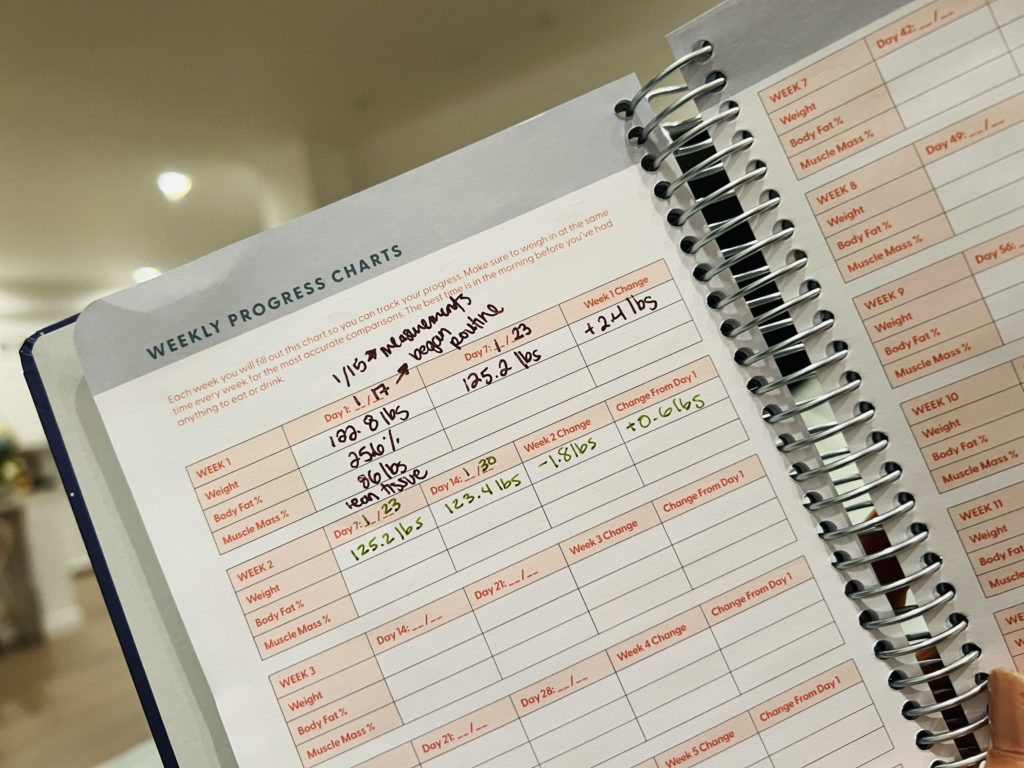 WEEKLY PROGRESS CHARTS
Each week you will fill out this chart so you can track your progress. Make sure to weigh in at the same
time every week for the most accurate comparisons. The best time is in the morning before you've had
anything to eat or drink.
1/15 → measurements
began
routine
WEEK 1 Day 1: 1/17 Day 7: 1/23 Week 1 Change
Weight 122.8 lbs 125.2 lbs +2.4 lbs
Body Fat % 25.6 %
Muscle Mass % 86 lbs
lean tissue
WEEK 2 Day 7: 1/23 Day 14: 1/30 Week 2 Change Change From Day 1
Weight 125.2 lbs 123.4 lbs -1.8 lbs +0.6 lbs
Body Fat %
Muscle Mass %
WEEK 3 Day 14: __/__ Day 21: __/__ Week 3 Change Change From Day 1
Weight
Body Fat %
Muscle Mass %
Day 21: __/__ Day 28: __/__ Week 4 Change Change From Day 1
Week 5 Change Change From Day 1
WEEK 7 Day 42: __/__
Weight
Body Fat %
Muscle Mass %
WEEK 8 Day 49: __/__
Weight
Body Fat %
Muscle Mass %
WEEK 9 Day 56:
Weight
Body Fat %
Muscle Mass %
WEEK 10
Weight
Body Fat %
Muscle Mass %
WEEK 11
Weight
Body Fat %
Muscle